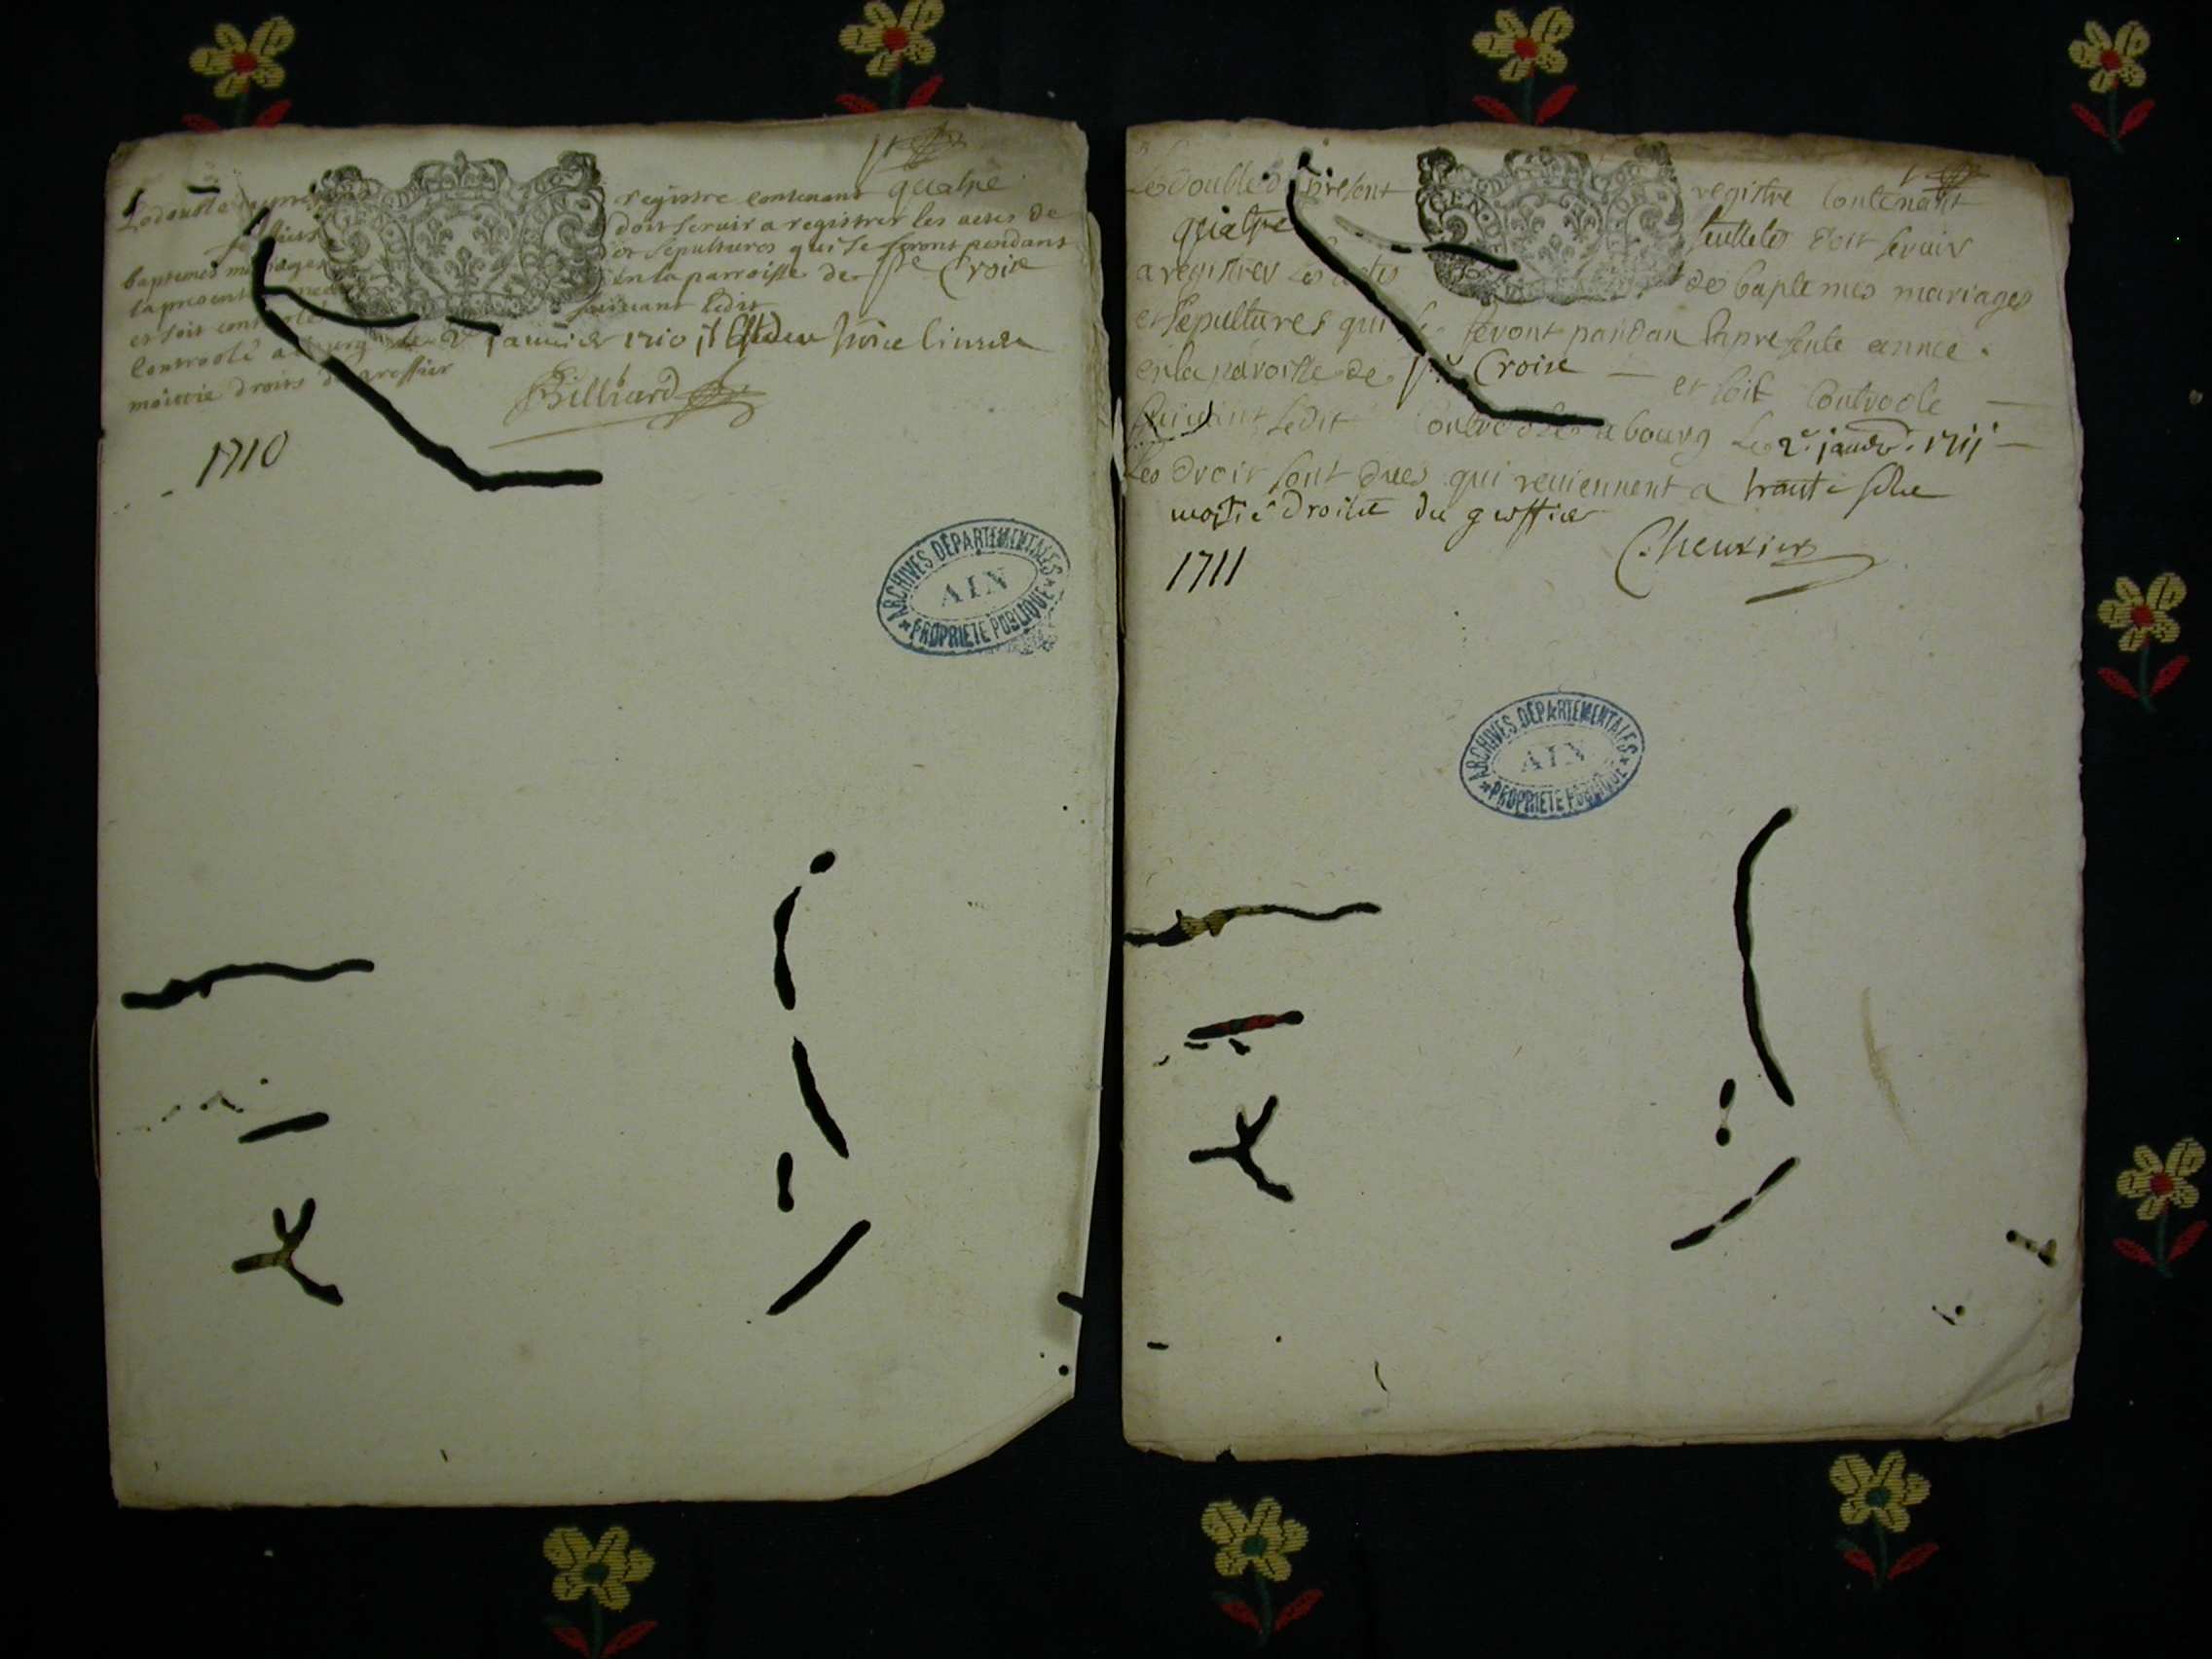 quatre
Le double du registre contenant
feuillets doit servir a registrer les actes de
baptemes mariages et sepultures qui se feront pendant
la presente annee en la parroisse de Ste Croix
et soit controolé suivant ledit
Controolé a bourg le 2e janvier 1710
moittie droits du greffier
Billiard
1710
ARCHIVES DÉPARTEMENTALES
AIN
PROPRIÉTÉ PUBLIQUE
Le double present registre contenant
quatre feuillets doit servir
a registrer les actes de baptemes mariages
et sepultures qui se feront pandan la presente année
en la paroisse de Ste Croix et soit controole
suivant ledit Controole a bourg le 2e janvr. 1711
Les droit sont dues qui reviennent a trante
moitié droitte du greffier
1711
ARCHIVES DÉPARTEMENTALES
AIN
PROPRIÉTÉ PUBLIQUE